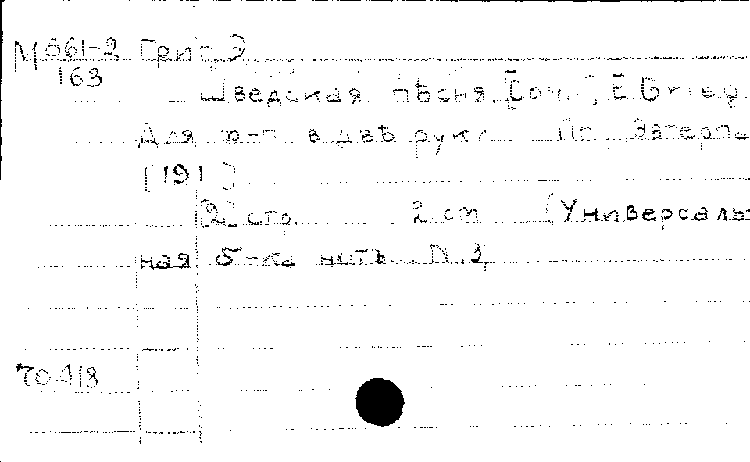 М 061-2 Григ, Э
163
Шведская пѣсня. [Соч.], E Grieg
Для ф-п в двѣ руки
[191 ]
2 стр. 2 сm (Универсаль
ная б-ка нотъ N. 3
70-418